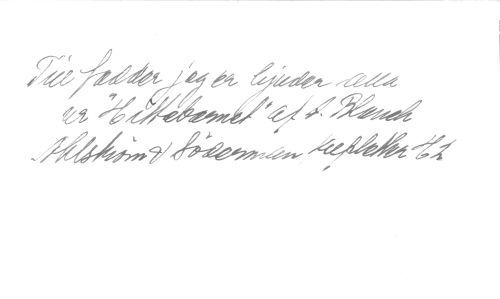 Till fadder jag er bjuder alla
ur "Hittebarnet" af A. Blanch
Ahlström & Söderman